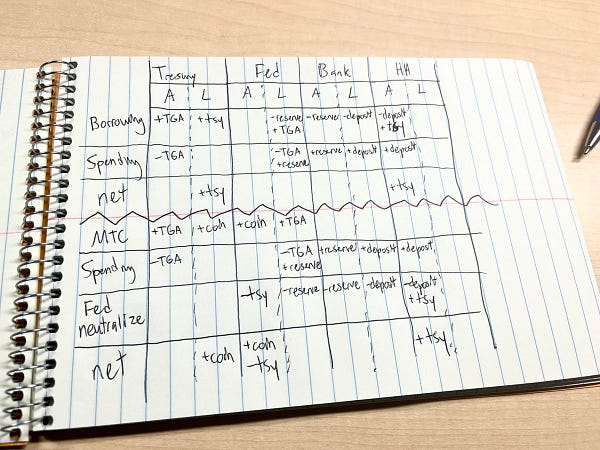 Tresury Fed Bank HH
A L A L A L A L
Borrowing +TGA +tsy -reserve -reserve -deposit -deposit
+TGA +tsy
Spending -TGA -TGA +reserve +deposit +deposit
+reserve
net +tsy +tsy
MTC +TGA +coin +coin +TGA
Spending -TGA -TGA +reserve +deposit +deposit
+reserve
Fed -tsy -reserve -reserve -deposit -deposit
neutralize +tsy
net +coin +coin +tsy
-tsy